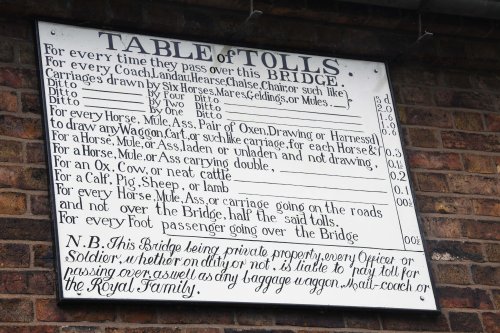 TABLE of TOLLS.
For every time they pass over this BRIDGE.
For every Coach, Landau, Hearse, Chaise, Chair, or such like
Carriages drawn by Six Horses, Mares, Geldings, or Mules. s d 2.0
Ditto by Four Ditto 1.6
Ditto by Two Ditto 1.0
Ditto by One Ditto 0.6
For every Horse, Mule, Ass, Pair of Oxen, Drawing or Harness'd
to draw any Waggon, Cart, or such like carriage, for each Horse &c 0.3
For a Horse, Mule, or Ass, laden or unladen and not drawing, 0.1½
For a Horse, Mule, or Ass carrying double, 0.2
For an Ox, Cow, or neat cattle 0.1
For a Calf, Pig, Sheep, or lamb 00½
For every Horse, Mule, Ass, or carriage going on the roads
and not over the Bridge, half the said tolls.
For every Foot passenger going over the Bridge 00½
N.B. This Bridge being private property, every Officer or
Soldier, whether on duty or not, is liable to pay toll for
passing over, as well as any baggage waggon, Mail-coach or
the Royal Family.